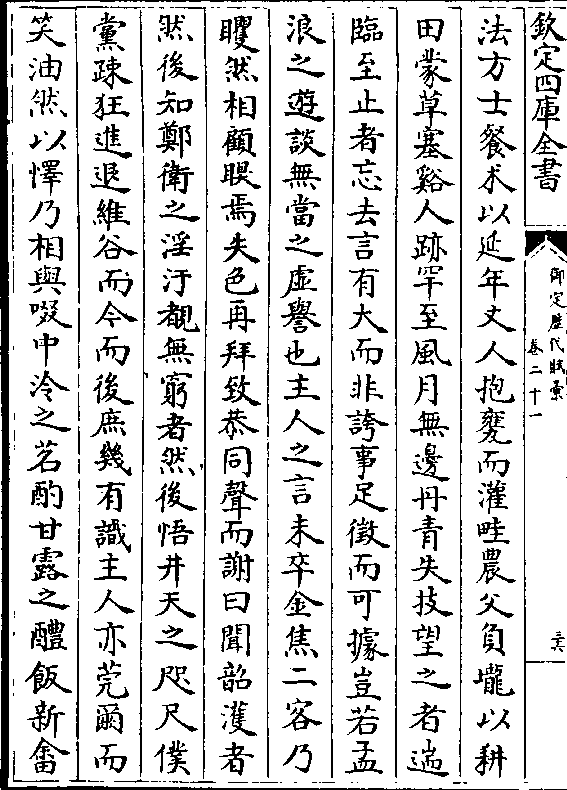 欽定四庫全書
御定歴代賦彙
卷二十一
法方士餐朮以延年丈人抱甕而灌畦農父負壠以耕
田蒙草塞谿人跡罕至風月無邊丹青失技望之者遄
臨至止者忘去言有大而非誇事足徵而可據豈若孟
浪之遊談無當之虛譽也主人之言未卒金焦二客乃
矍然相顧眹焉失色再拜致恭同聲而謝曰聞韶濩者
然後知鄭衛之淫汙覩無窮者然後悟井天之咫尺僕
黨疎狂進退維谷而今而後庶幾有識主人亦莞爾而
笑油然以懌乃相與啜中泠之茗酌甘露之醴飯新畬